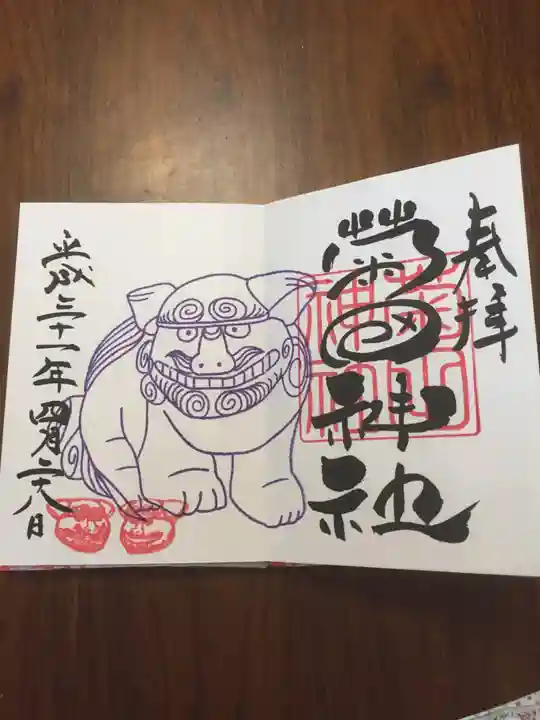 奉拝
神社
平成三十一年四月二十八日